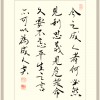 今之成人者何必然
見利思義見危授命
久要不忘平生之言
亦可以為成人矣